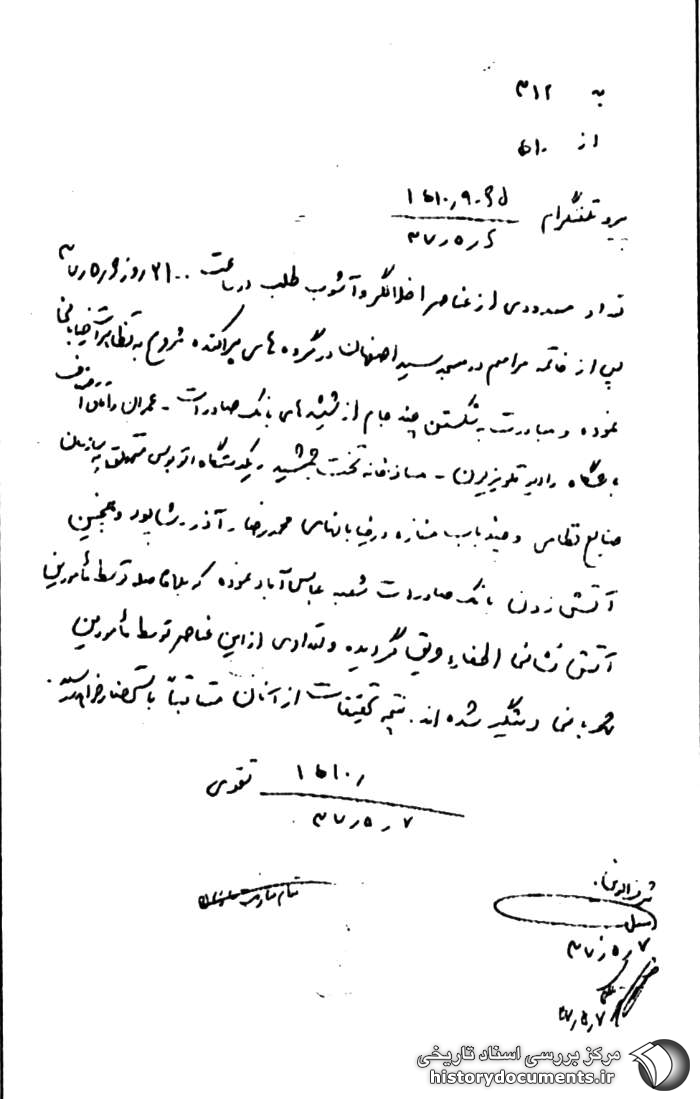 به ۳۱۲
از ۵۱۰
پیرو تلگرام
۳۷٫۵٫۶
تعداد معدودی از عناصر اخلالگر و آشوب طلب در ساعت ۲۱۰۰ روز ۶٫۵٫۳۷
پس از خاتمه مراسم در مسجد سید اصفهان در گروه های پراکنده شروع به تظاهرات خیابانی
نموده و مبادرت به شکستن چند جام از شیشه های بانک صادرات - عمران
باشگاه رادیو تلویزیون - مسافرخانه تخت جمشید یکدستگاه اتوبوس متعلق به سازمان
صنایع نظامی و چند باب مغازه در خیابانهای محمدرضا - آذر - شاپور و همچنین
آتش زدن بانک صادرات شعبه عباس آباد نموده که بلافاصله توسط مأمورین
آتش نشانی اطفاء حریق گردیده و تعدادی از این عناصر توسط مأمورین
شهربانی دستگیر شده اند. نتیجه تحقیقات از آنان متعاقباً باستحضار خواهد رسید.
۵۱۰٫ تقوی
۳۷٫۵٫۷
۳۷٫۵٫۷
۳۷٫۵٫۷
مرکز بررسی اسناد تاریخی
historydocuments.ir